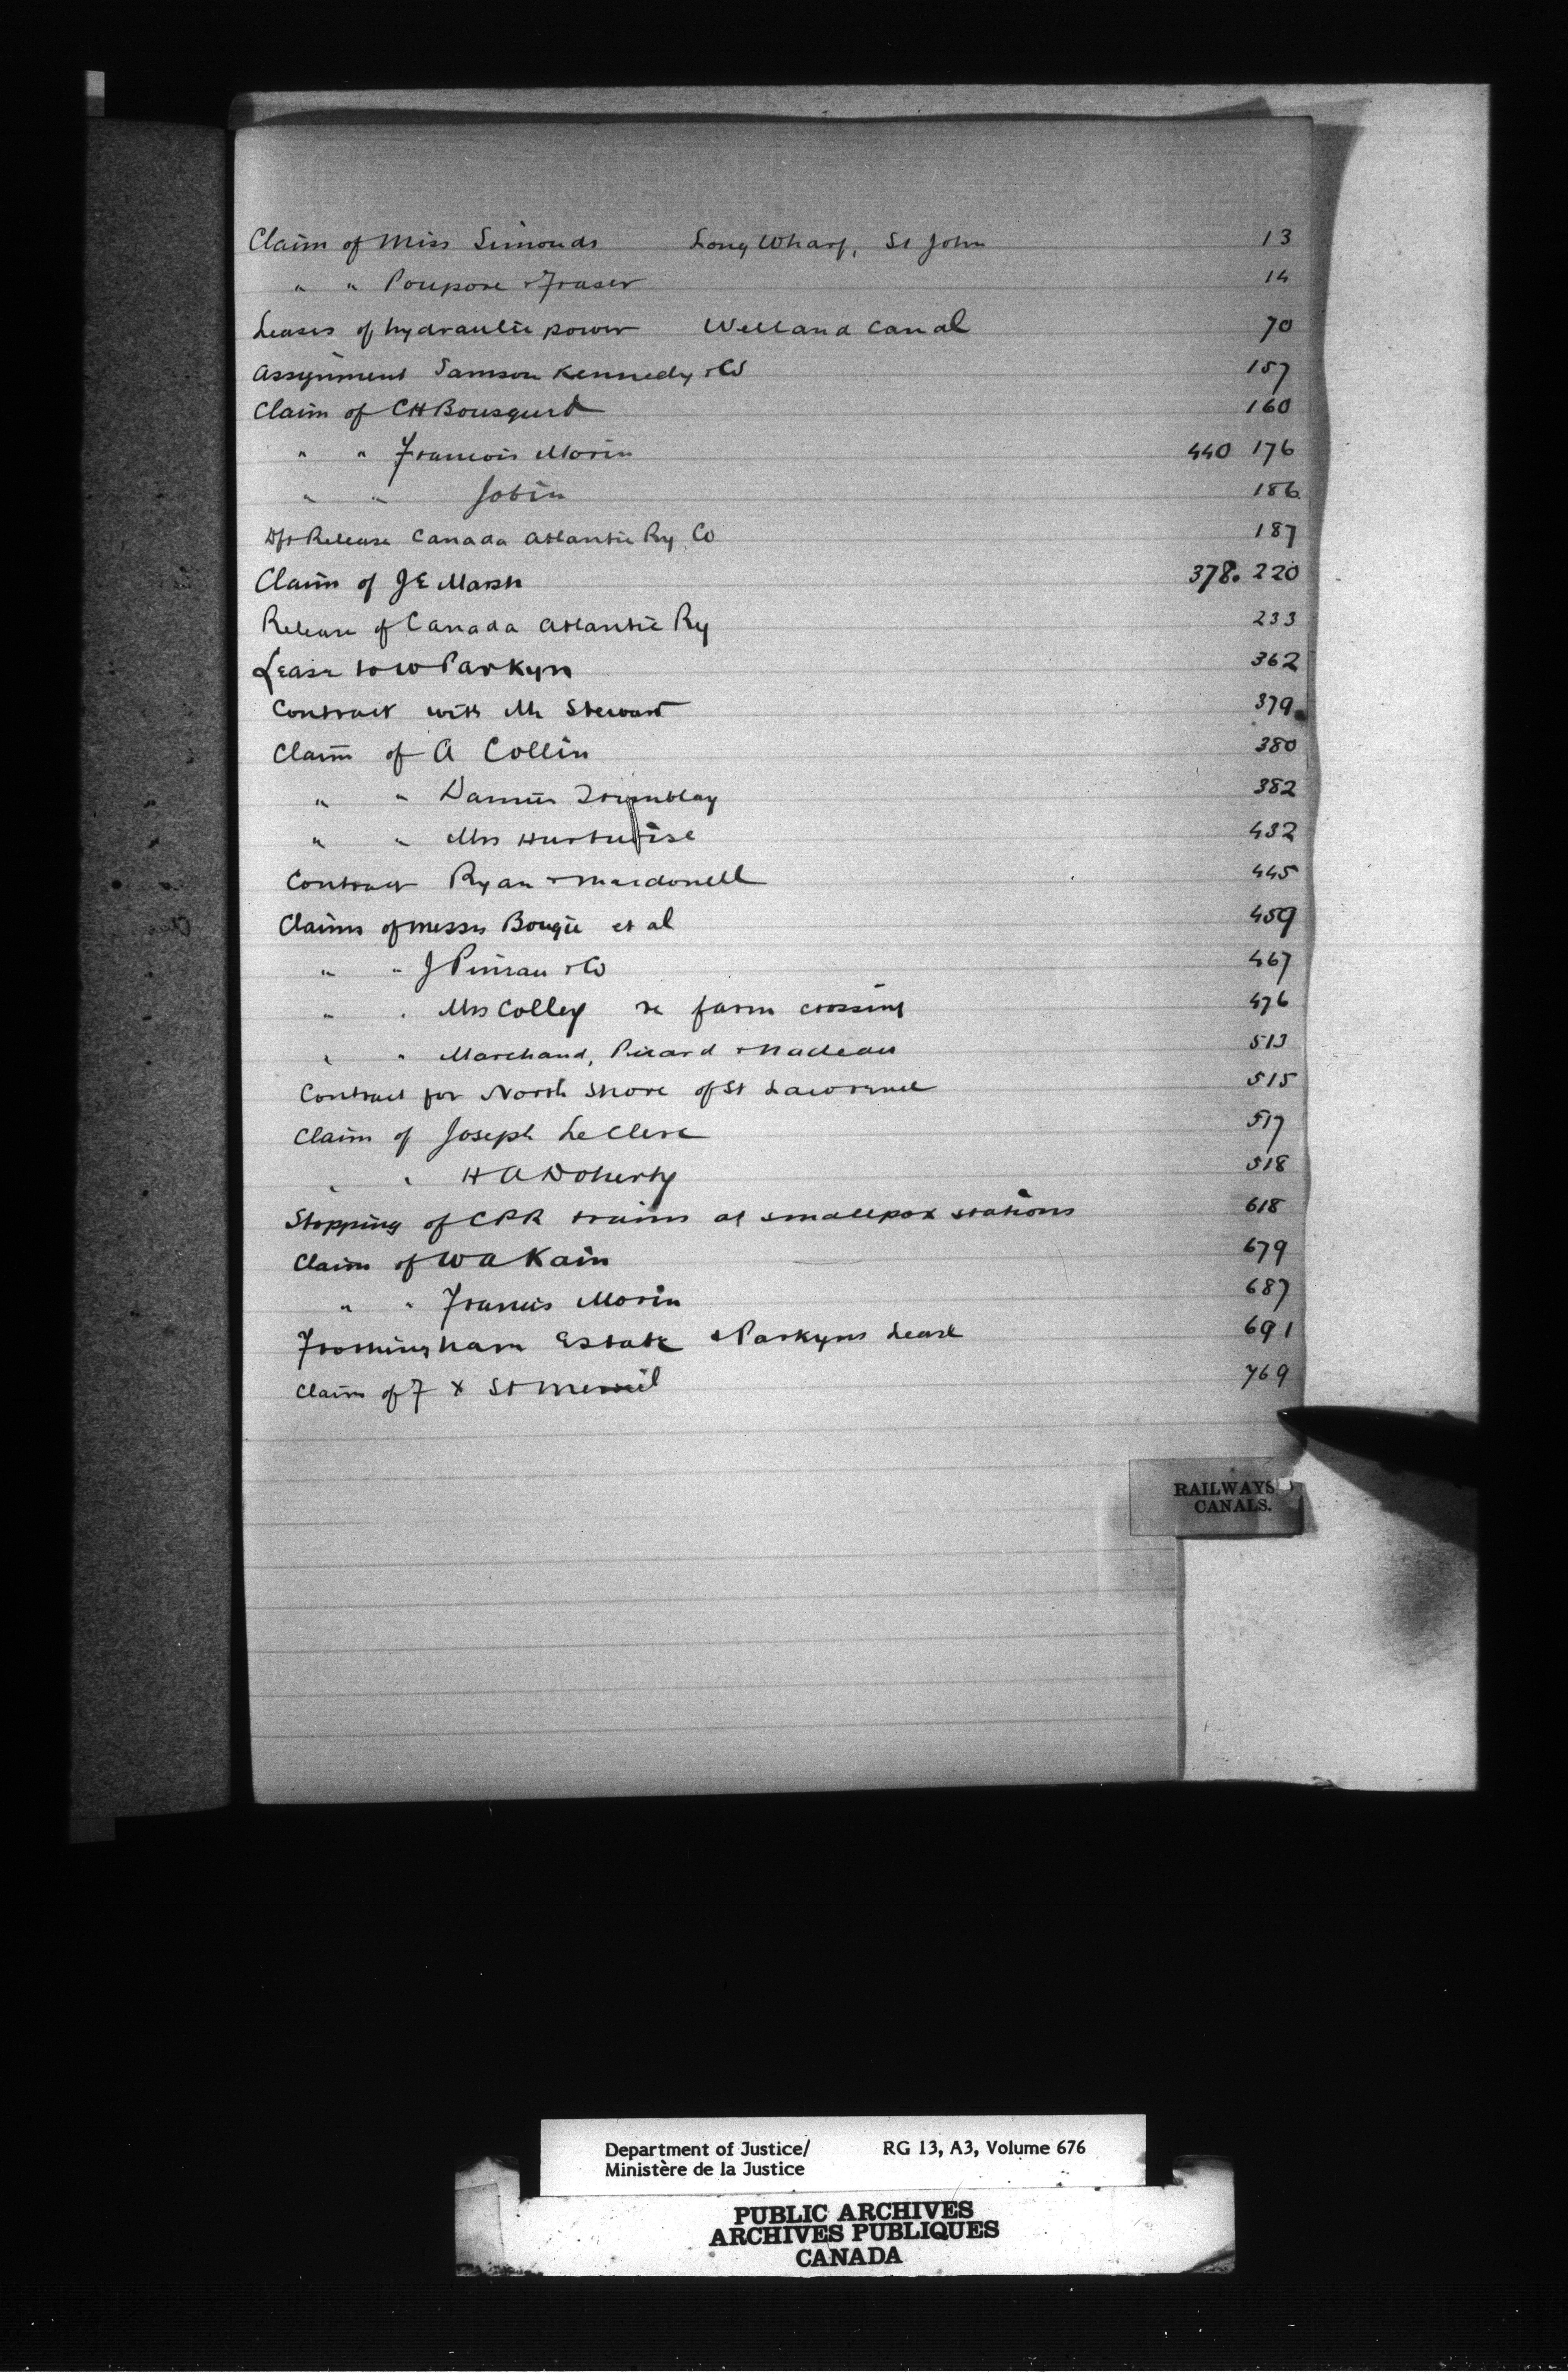 Claim of Miss Simonds Long Wharf, St John 13
" " Poupore & Fraser 14
Leases of hydraulic power Welland Canal 70
Assignment Samson Kennedy & Co 157
Claim of CH Bousquet 160
" " Francois Morin 440 176
" " Jobin 186
Dft Release Canada Atlantic Ry Co 187
Claim of J E Marsh 378. 220
Release of Canada Atlantic Ry 233
Lease to W Parkyn 362
Contract with Mr Stewart 379
Claim of A Collin 380
" " Damien Tremblay 382
" " Mrs Hurtubise 432
Contract Ryan & Macdonell 445
Claims of Messrs Bougie et al 459
" " J Pinsau & Co 467
" " Mrs Colley re farm crossing 476
" " Marchand, Picard & Nadeau 513
Contract for North Shore of St Lawrence 515
Claim of Joseph LeClerc 517
" " H A Doherty 518
Stopping of CPR trains at smallpox stations 618
Claim of W A Kain 679
" " Francis Morin 687
Frothingham Estate & Parkyns Lease 691
Claim of F X St 769
RAILWAYS
CANALS.
Department of Justice/ RG 13, A3, Volume 676
Ministère de la Justice
PUBLIC ARCHIVES
ARCHIVES PUBLIQUES
CANADA